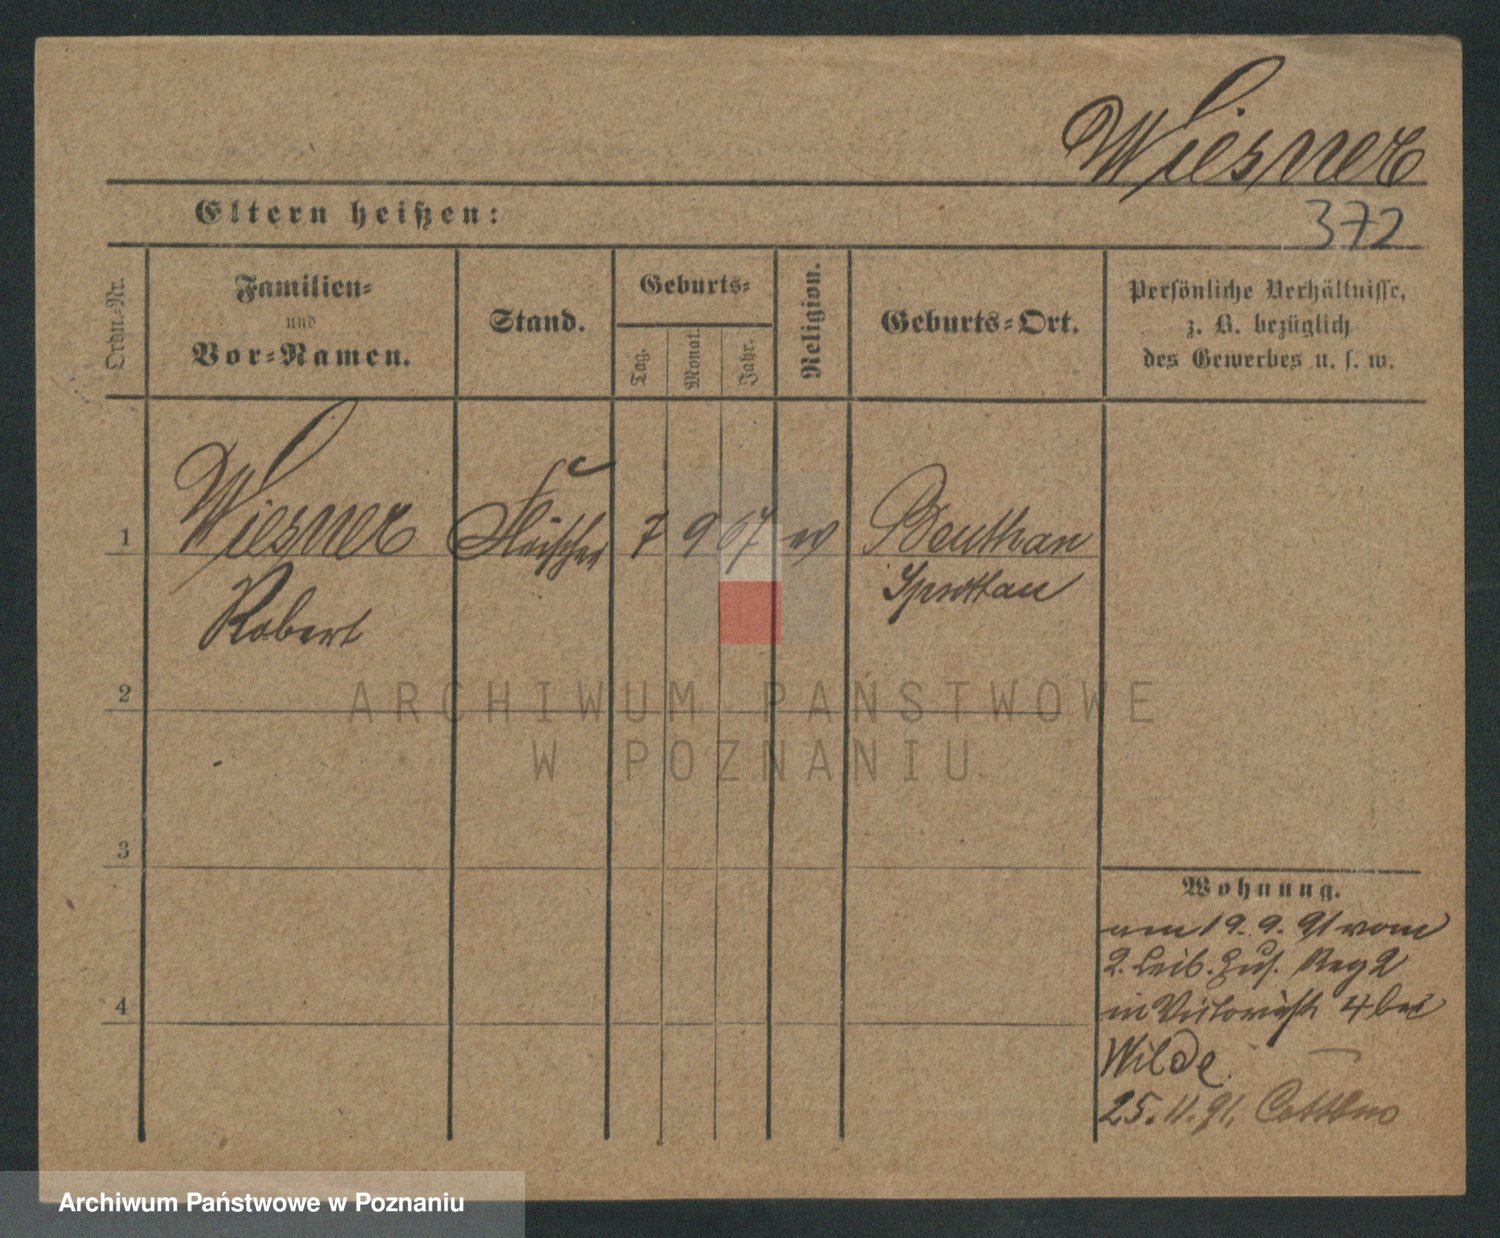 Wiesner
Eltern heißen:
372
Ordn.-Nr.
Familien-
und
Vor-Namen.
Stand.
Geburts-
Tag.
Monat.
Jahr.
Religion.
Geburts-Ort.
Persönliche Verhältnisse,
z. B. bezüglich
des Gewerbes u. s. w.
1
Wiesner
Robert
Fleischer
7
9
67
Beuthan
Sprottau
2
ARCHIWUM PAŃSTWOWE
W POZNANIU
3
4
Wohnung.
am 19. 9. 91 vom
2. Leib. Hus. Reg 2
in Victoriastr 4 bei
Wilde.
25. 11. 91.
Archiwum Państwowe w Poznaniu